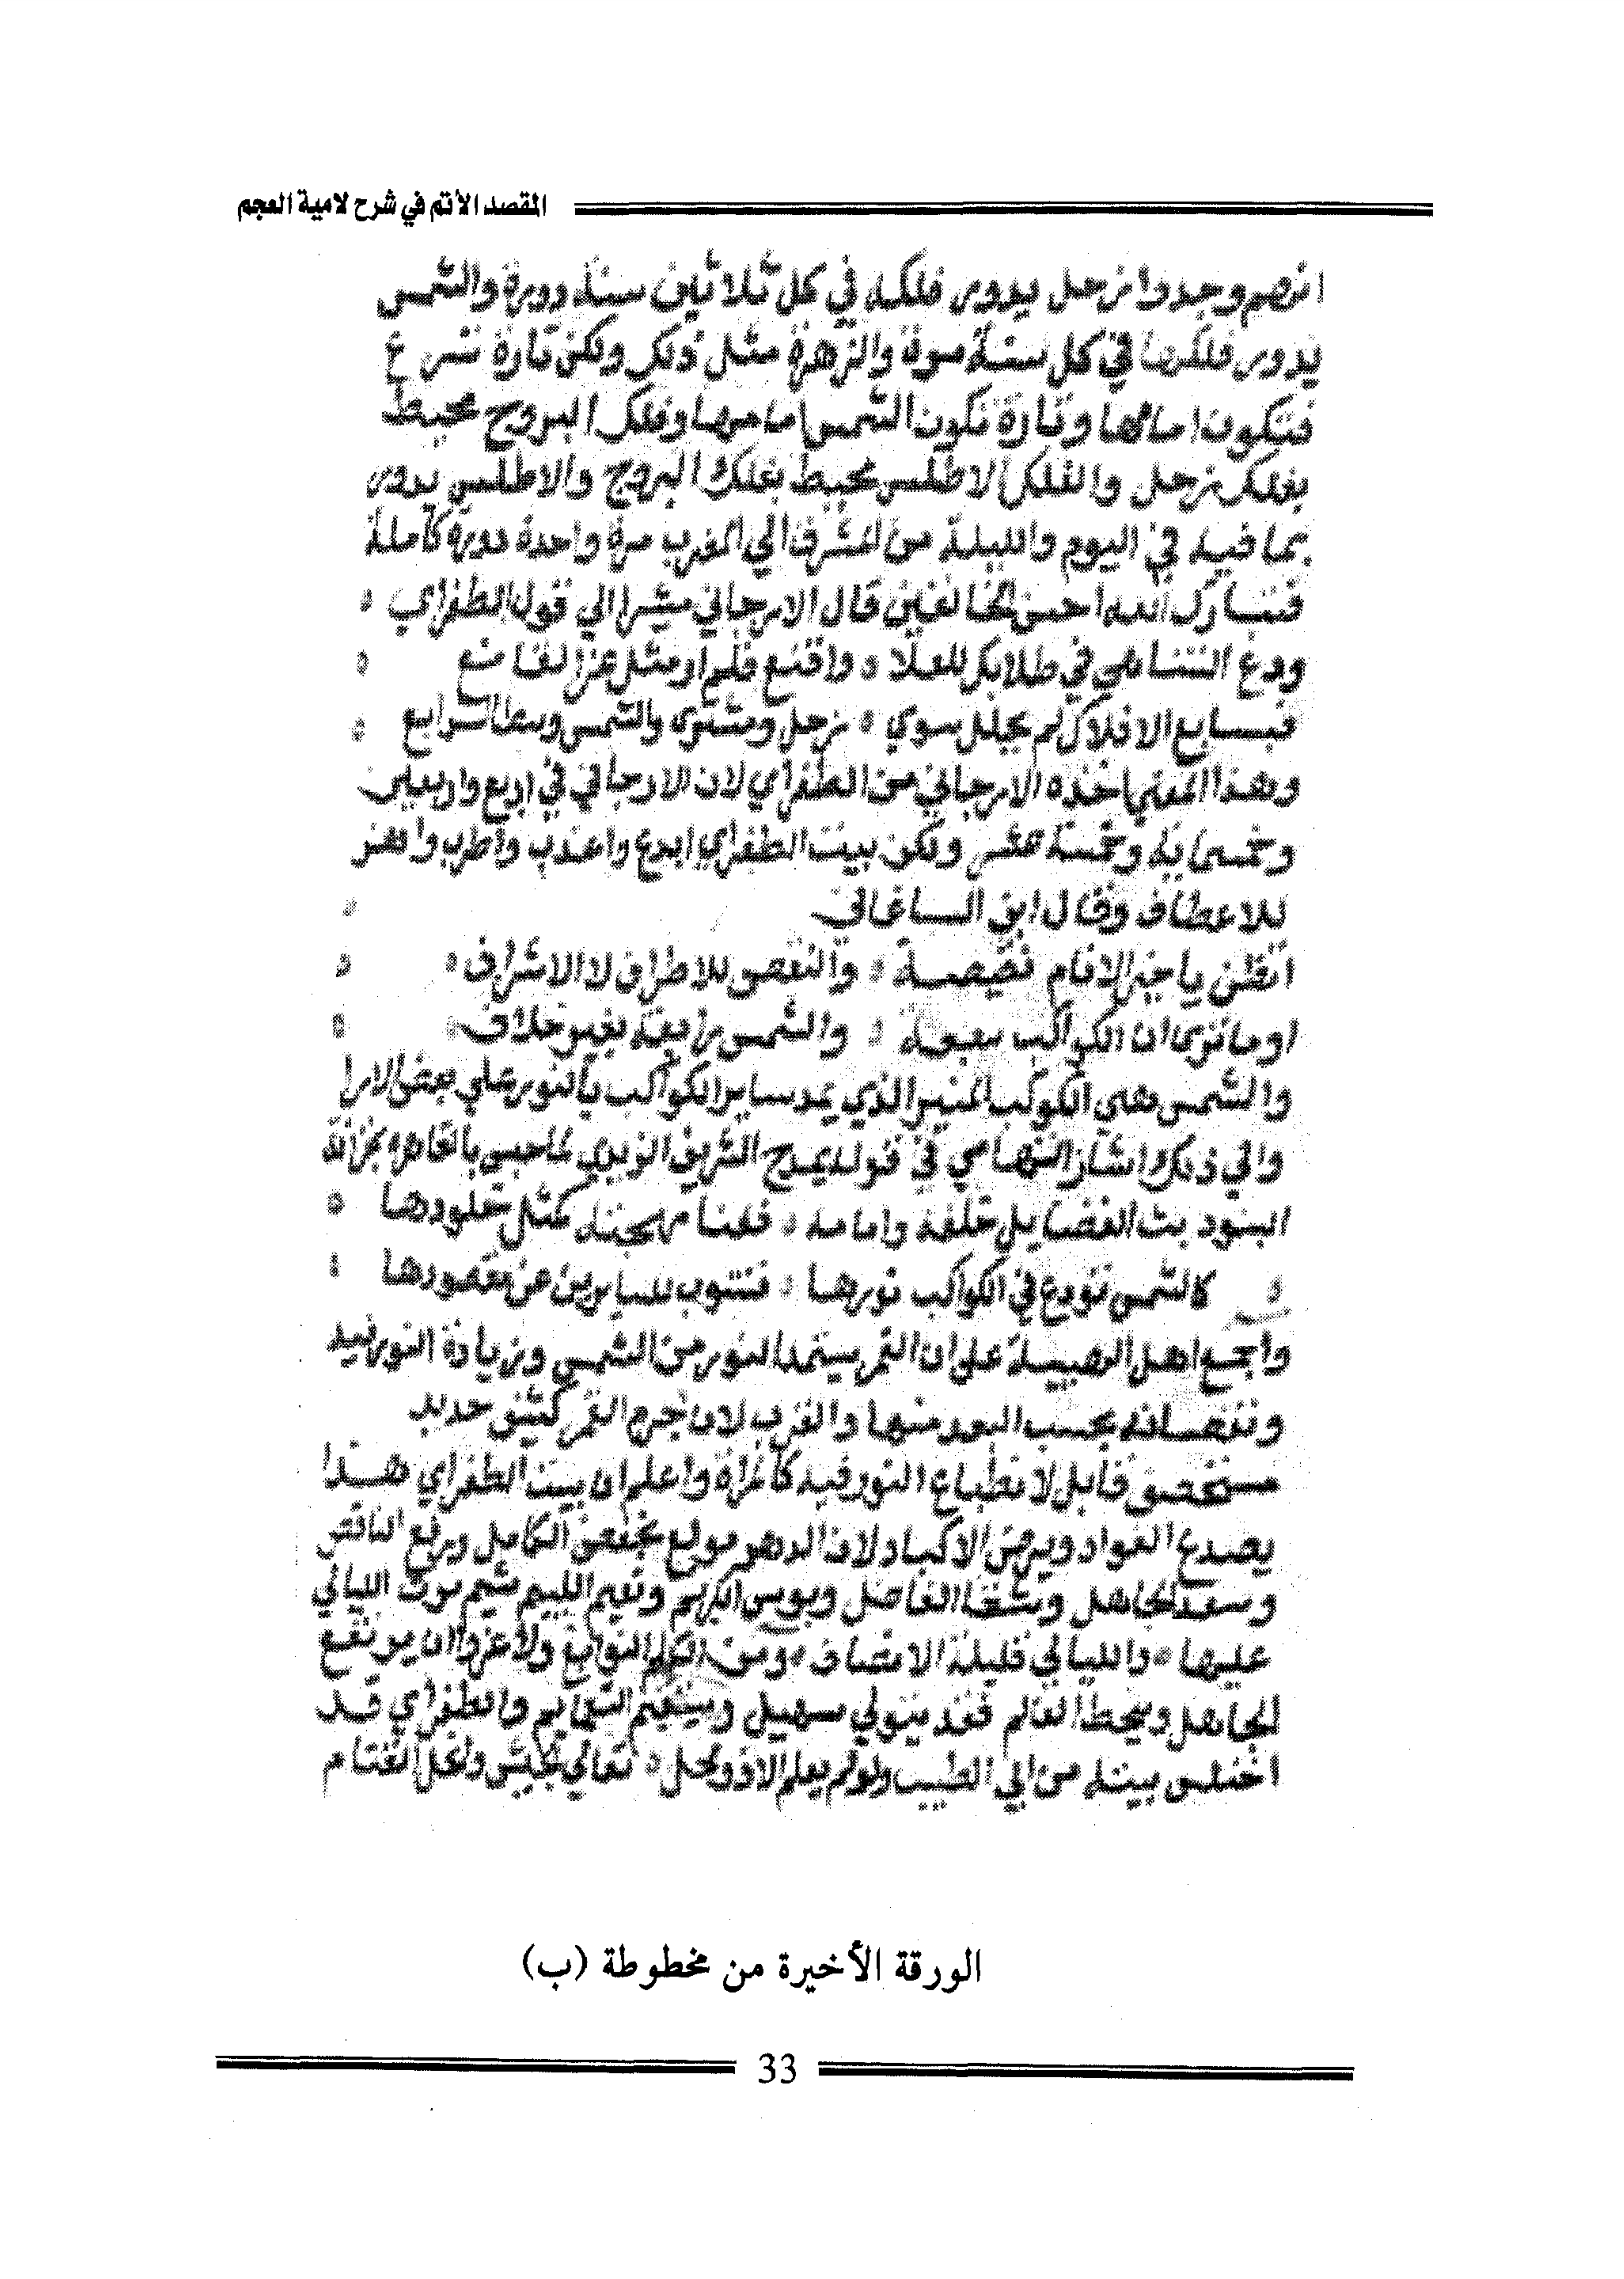 المقصد الأتم في شرح لامية العجم
انهم وجدوا زحل يدور فلكه في كل ثلاثين سنة دورة والشمس
يدور فلكها في كل سنة مرة والزهرة مثل ذلك ولكن تارة تسرع
فتكون امامها وتارة تكون الشمس امامها وفلك البروج محيط
بفلك زحل والفلك الاطلس محيط بفلك البروج والاطلس يدور
بما فيه في اليوم والليلة من المشرق الي المغرب مرة واحدة دورة كاملة
فتبارك الله احسن الخالقين قال الارجاني مشيرا الي قول الطغراي
ودع التناهي في طلابك للعلا واقنع فلم ار مثل عز القانع
فبسابع الافلاك لم يحلل سوي زحل ومشترى والشمس وسط الرابع
وهذا المعني اخذه الارجاني من الطغراي لان الارجاني في اربع واربعين
وخمسماية وخمسة عشر ولكن بيت الطغراي ابدع واعذب واطرب واهز
للاعطاف وقال ابن الساعاتي
لا الاشراف والنقص للاطراف
اوما ترى ان الكواكب سبعة والشمس رابعة بغير خلاف
والشمس هي الكوكب المنير الذي يمد ساير الكواكب بالنور علي بعض الارا
والي ذلك اشار التهامي في قوله يمدح الشريف الزيدي
الفضايل خلفه وامامه
كالشمس تودع في الكواكب نورها فتنوب للسايرين عن مقصودها
واجمع اهل الهيية على ان القمر يستمد النور من الشمس وزيادة النور فيه
ونقصانه بحسب البعد منها والقرب لان جرم القمر كثيف حديد
قابل لانطباع النور فيه كالمراة واعلم ان بيت الطغراي هذا
يصدع الفواد ويرض الاكباد لان الدهر مولع بخفض الكامل ورفع الناقص
وسعد الجاهل وشقا الفاضل وبوس الكريم ونعيم الليم شيم مرت الليالي
عليها والليالي قليلة الانصاف ومن الكلم النوابغ ولا غرو ان يرتفع
الجاهل وينحط العالم فقد يتولي سهيل والطغراي قد
اختلس بيته من ابي الطيب ولو لم يعل الا ذو محل تعالي الجيش وانحط القتام
الورقة الأخيرة من مخطوطة (ب)
33